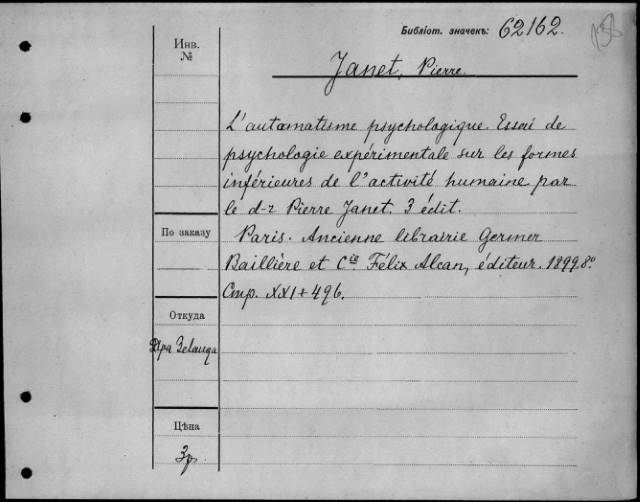 Библіот. значекъ: 62162.
158
Инв.
№
Janet, Pierre.
L'automatisme psychologique. Essai de
psychologie expérimentale sur les formes
inférieures de l'activité humaine par
le d-r Pierre Janet. 3 édit.
По заказу
Paris. Ancienne librairie Germer
Baillière et Cie Félix Alcan, éditeur. 1899. 8º.
Стр. XXI+496.
Откуда
Цѣна
3р.